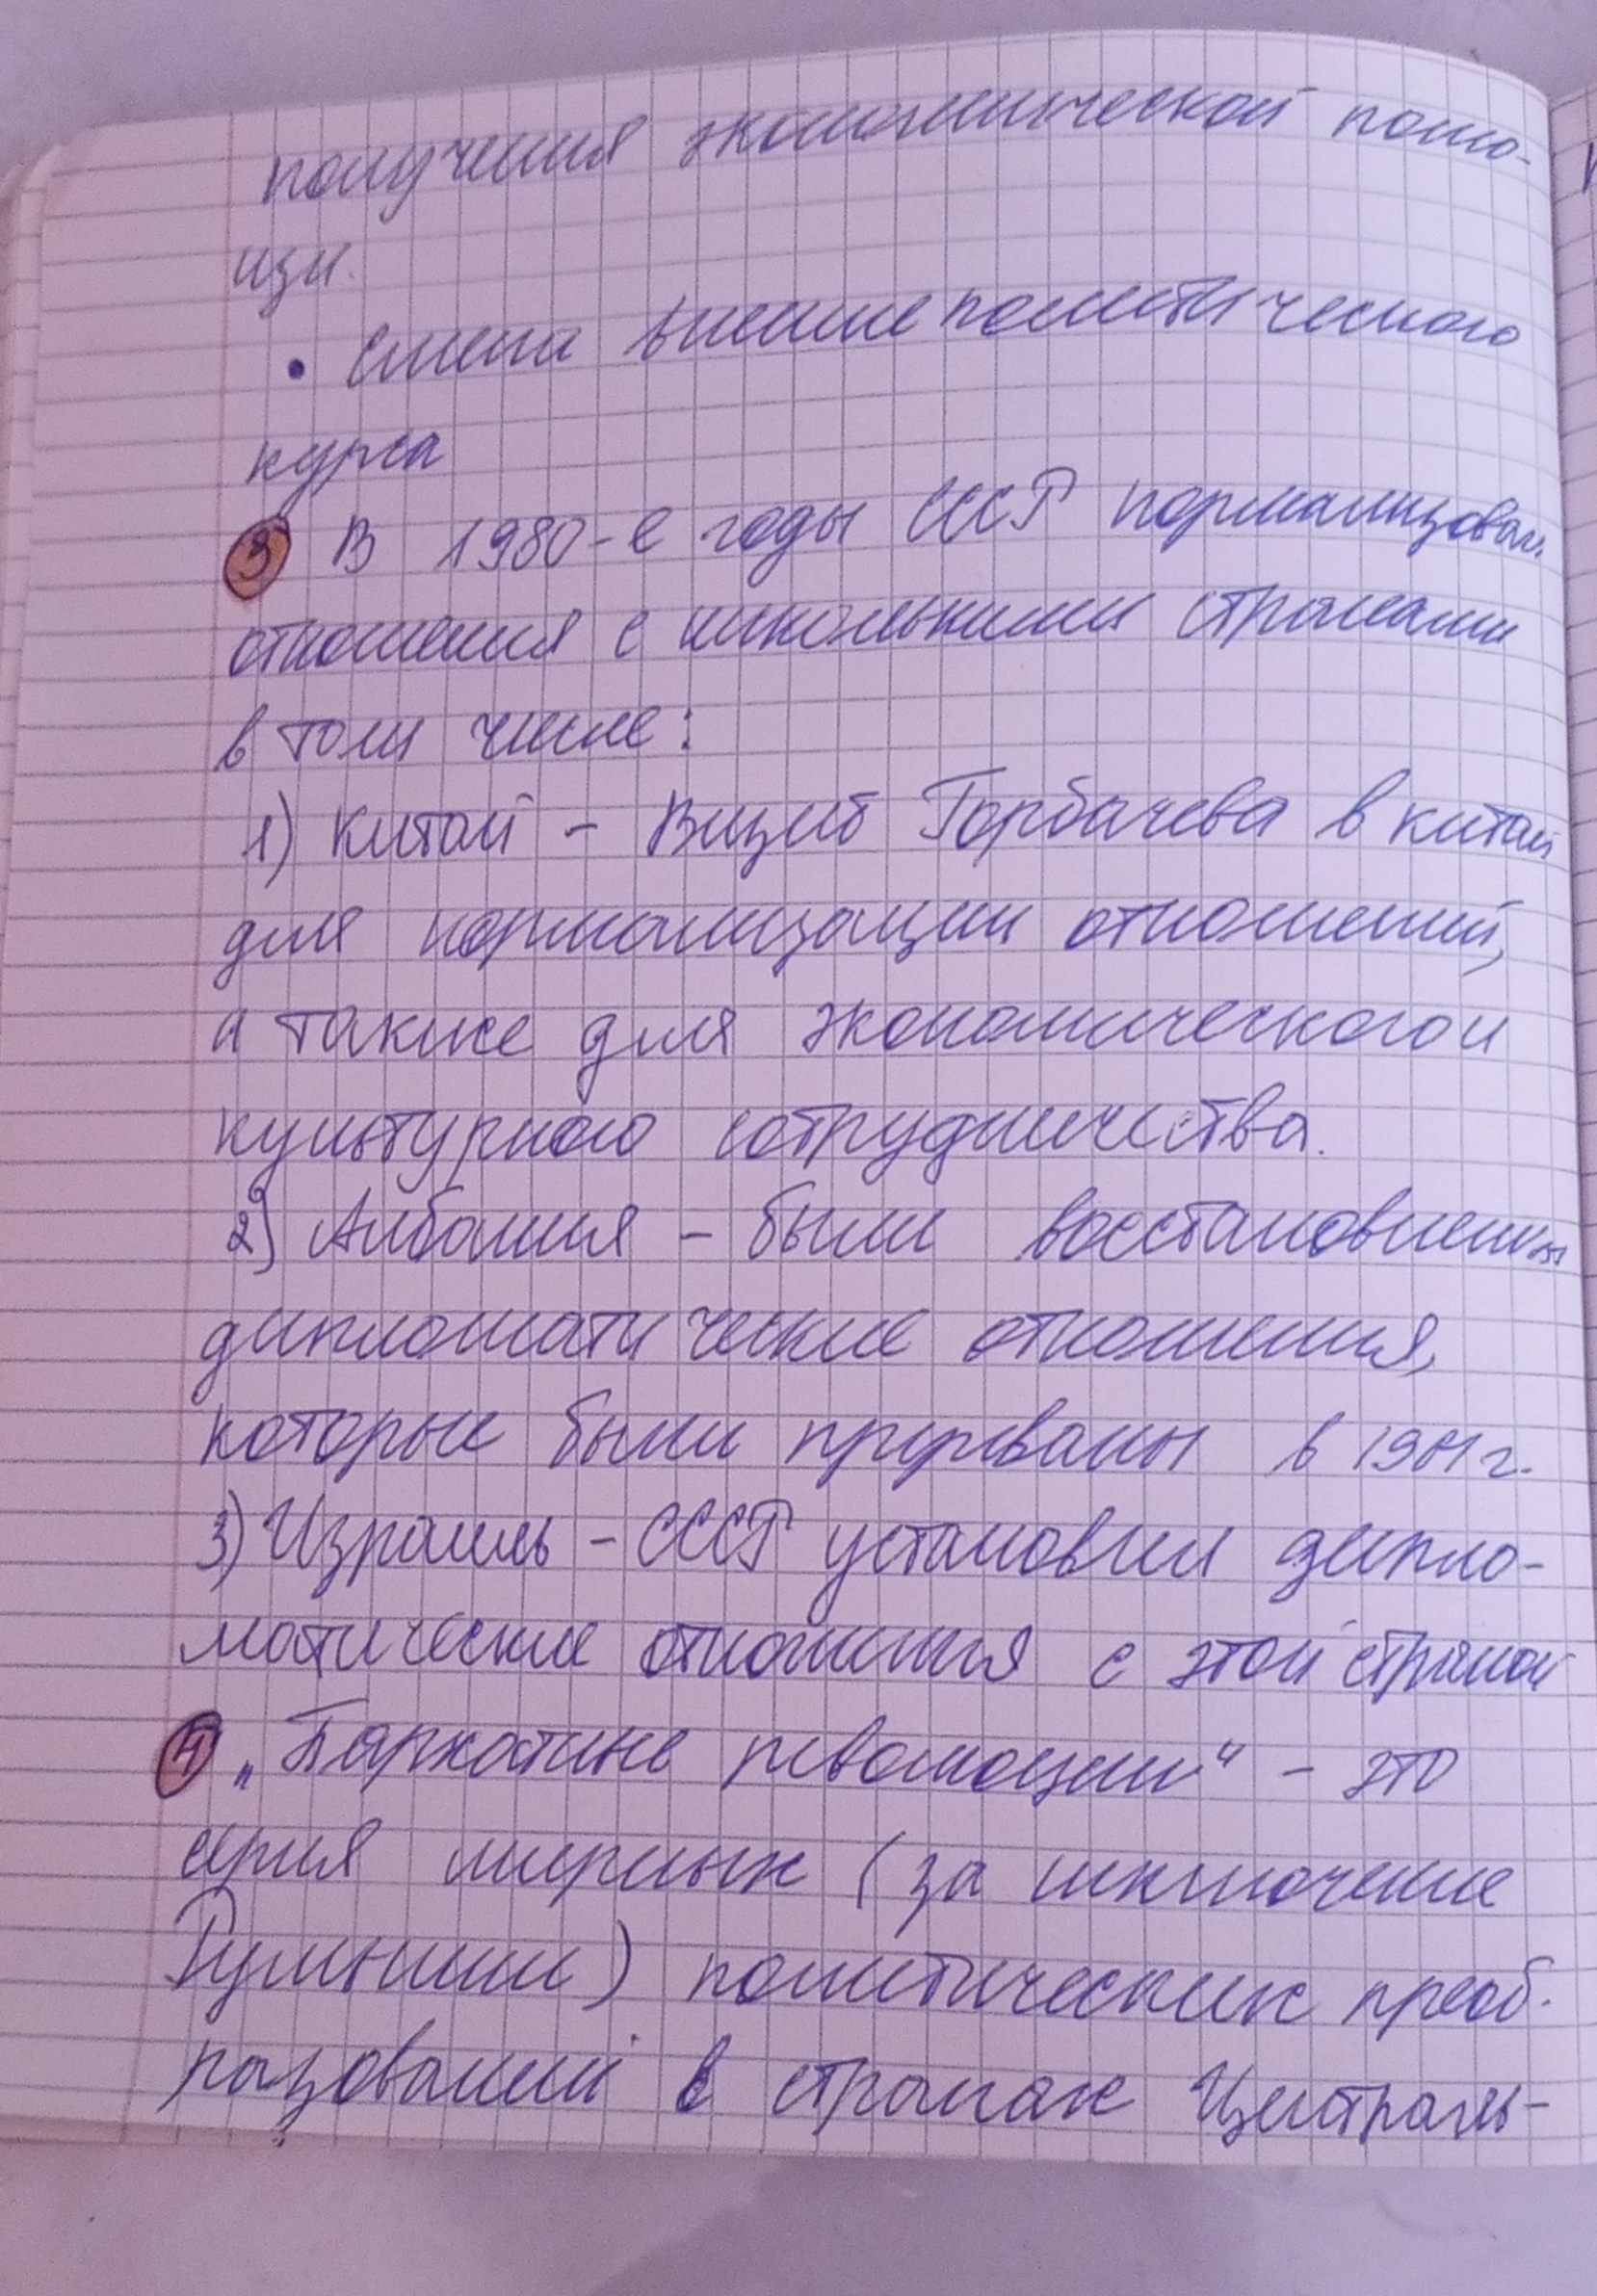 получения экономической помо-
щи.
• смена внешнеполитического
курса
3 В 1980-е годы СССР нормализовал
отношения с несколькими странами
в том числе:
1) Китай - Визит Горбачева в китай
для нормализации отношений,
а также для экономического и
культурного сотрудничества.
2) Албания - были восстановлены
дипломатические отношения,
которые были прерваны в 1961 г.
3) Израиль - СССР установил дипло-
матические отношения с этой страной
4 „Бархатные революции" - это
серия мирных (за исключение
Румынии) политических преоб-
разований в странах Централь-